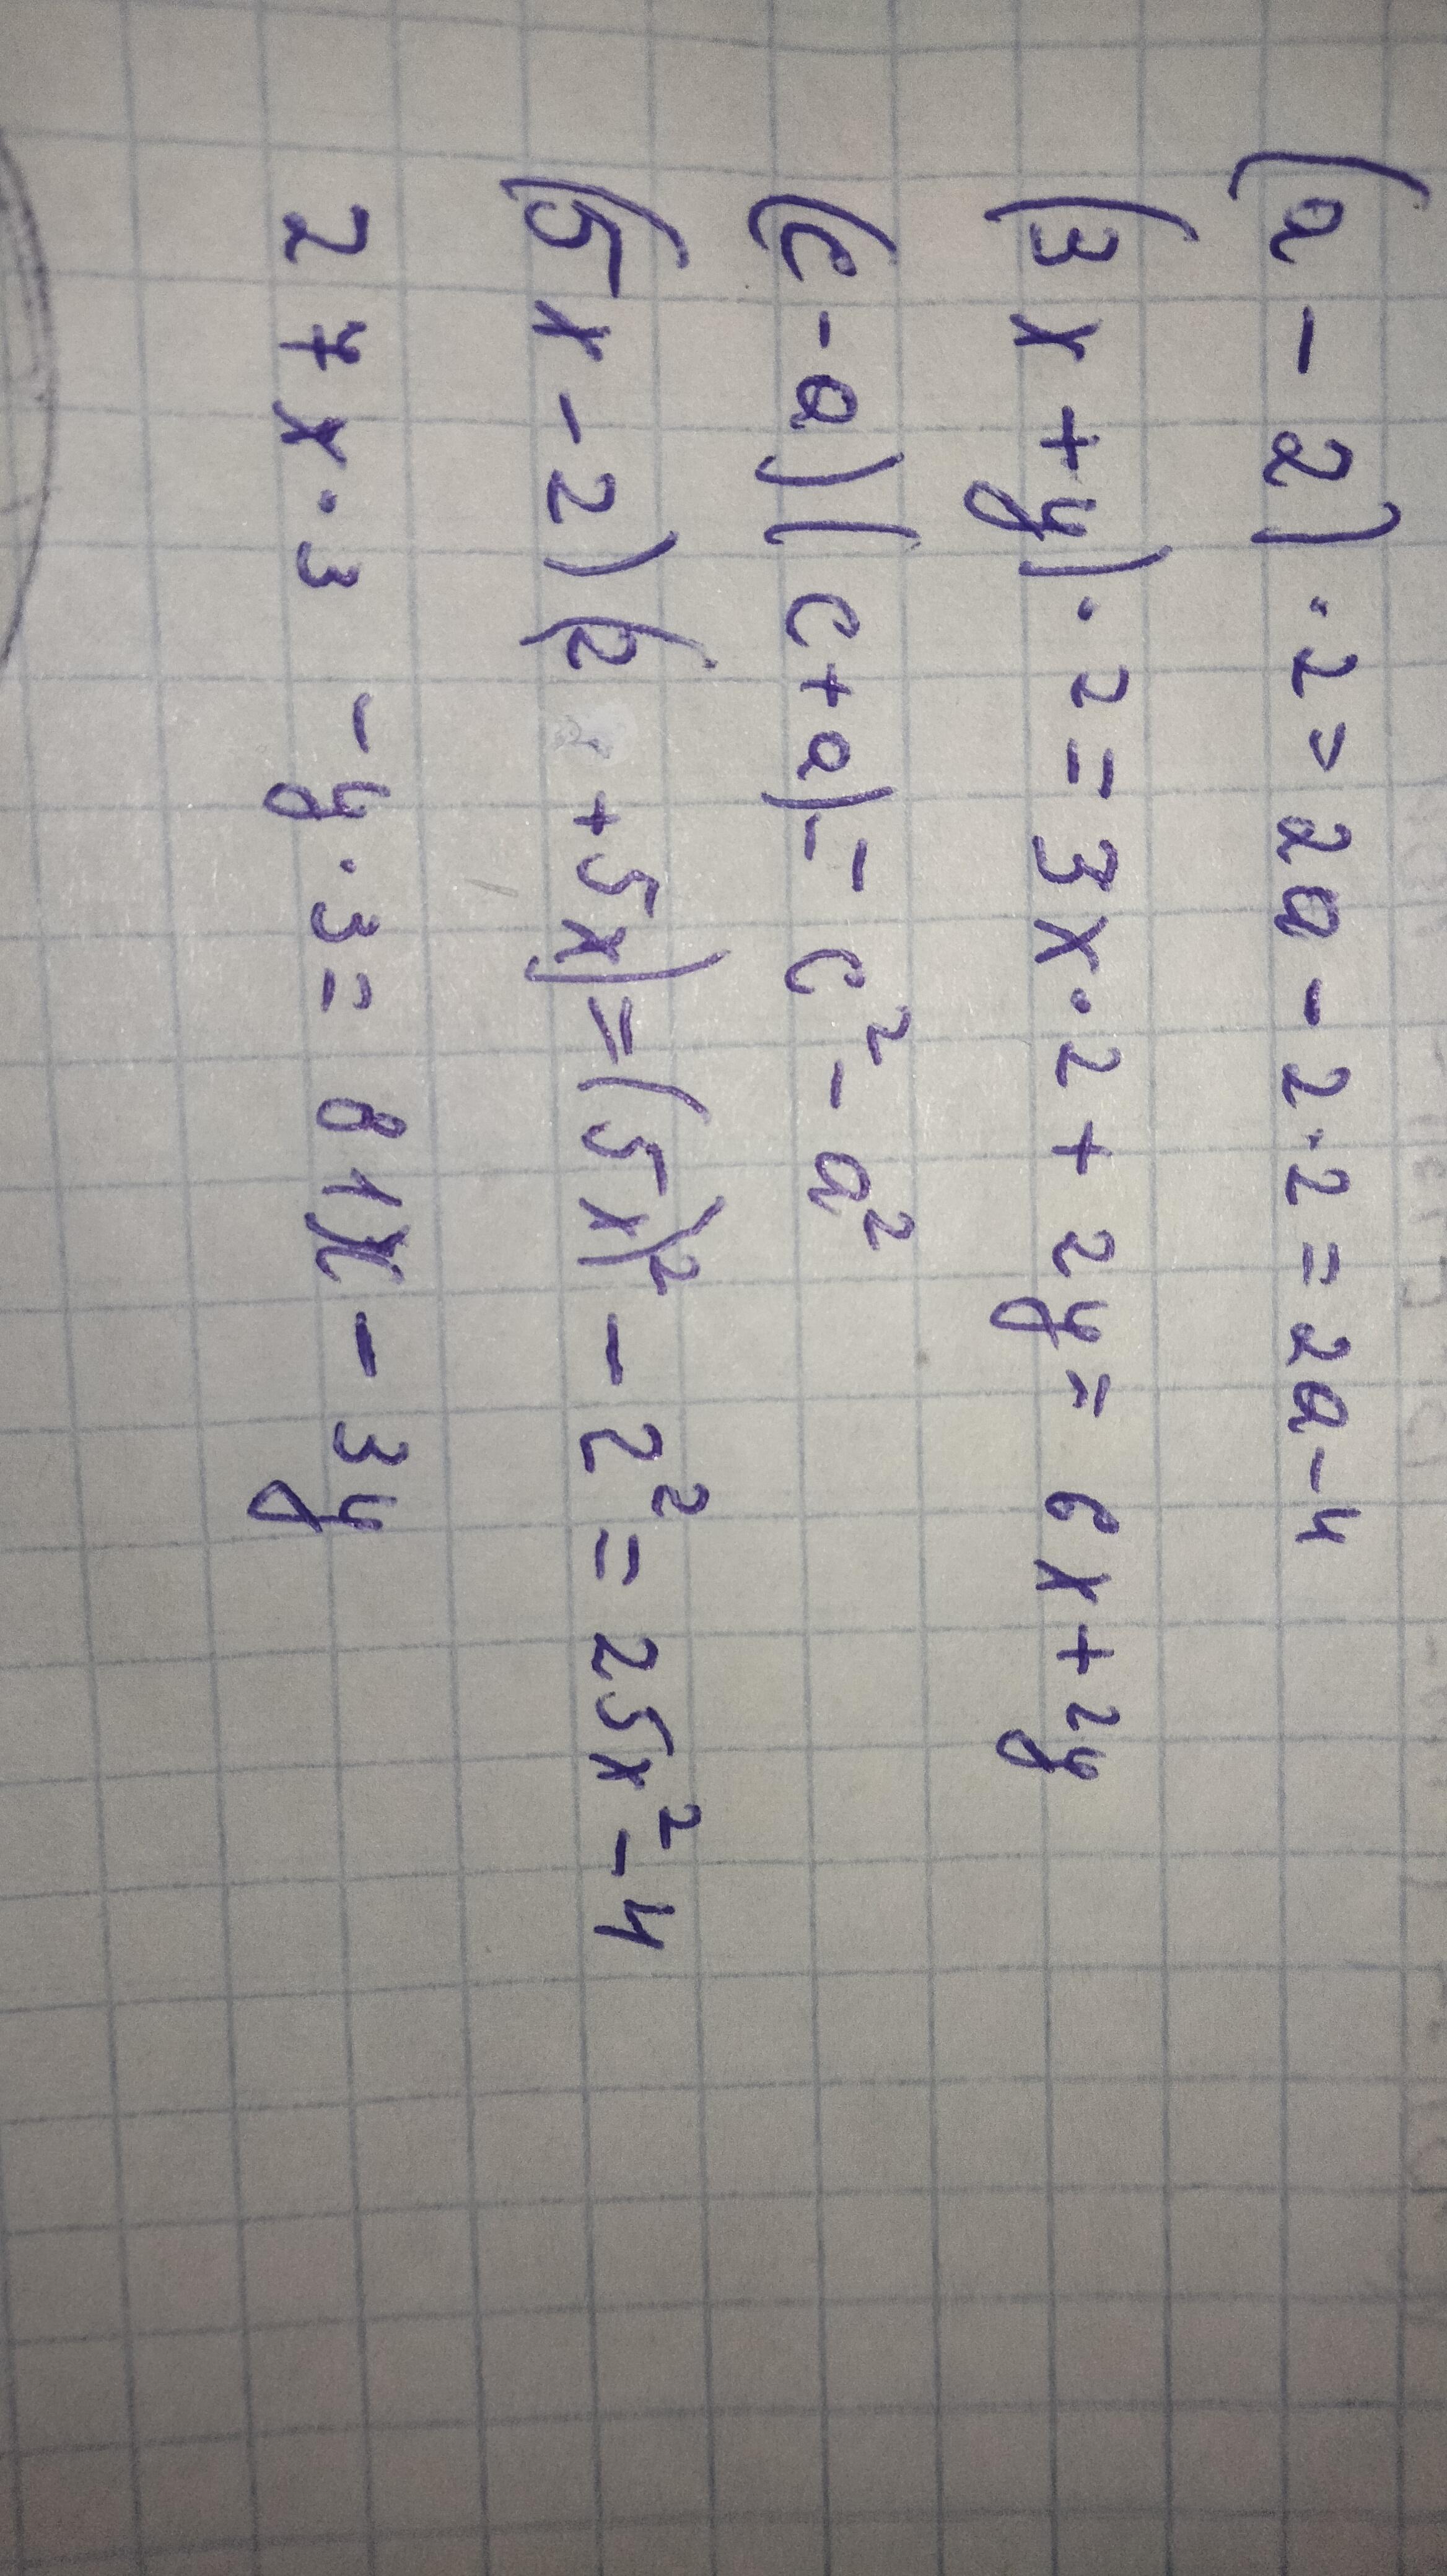 (a-2)·2=2a-2·2=2a-4
(3x+y)·2=3x·2+2y=6x+2y
(c-a)(c+a)=c²-a²
(5x-2)(2+5x)=(5x)²-2²=25x²-4
27x·3-y·3=81x-3y